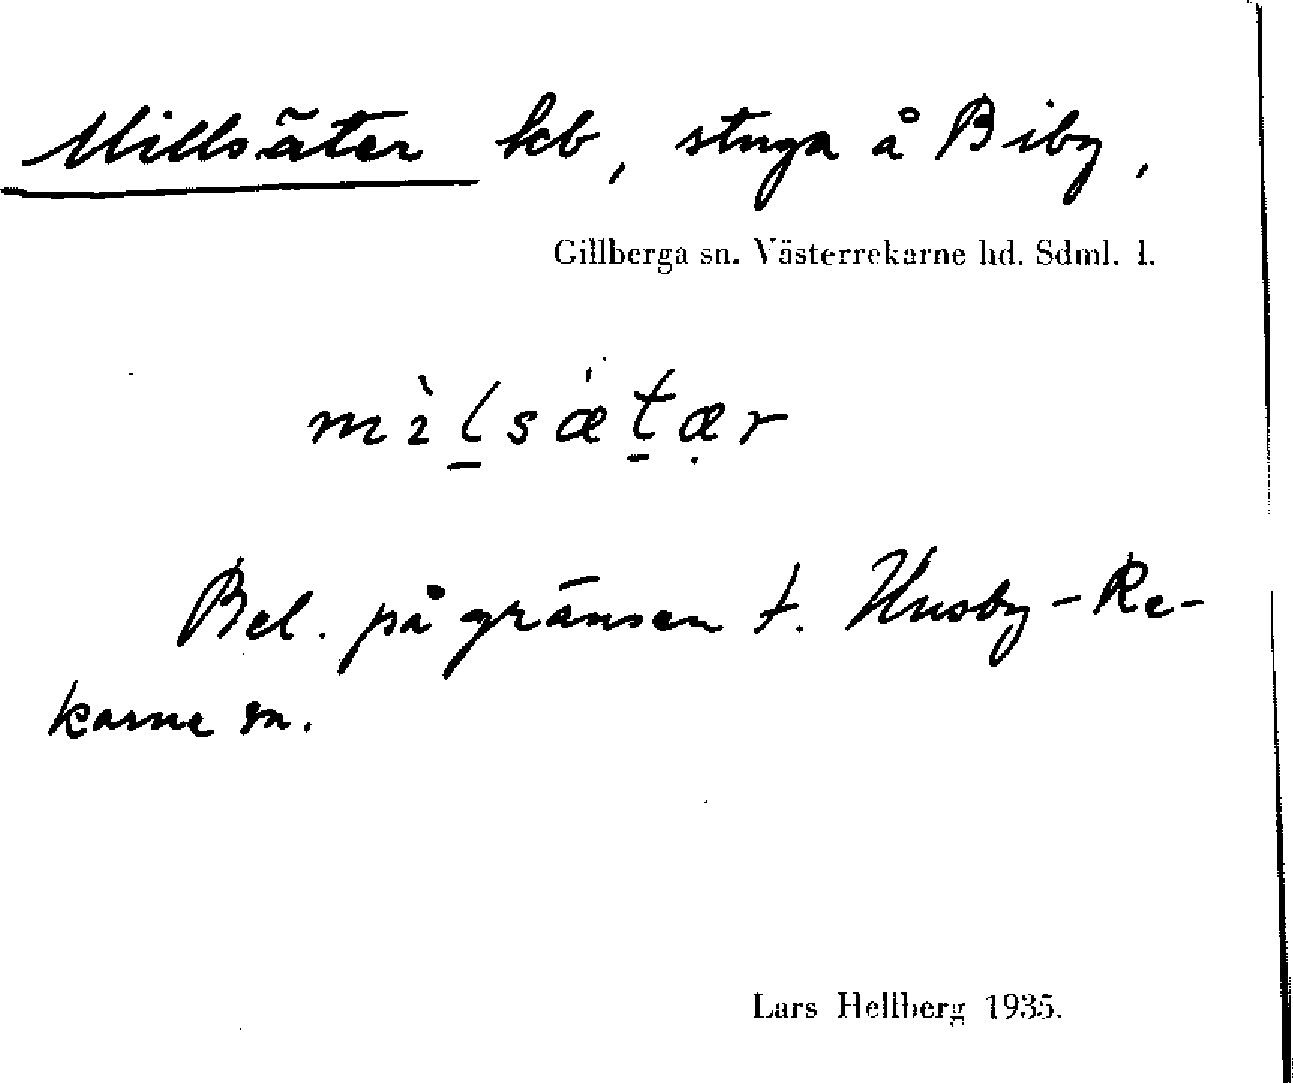 Millsäter kb, stuga å Biby,
Gillberga sn. Västerrekarne hd. Sdml. l.
mìl̠sǽt̠æ̣r
Bel. på gränsen t. Husby-Re-
karne sn.
Lars Hellberg 1935.